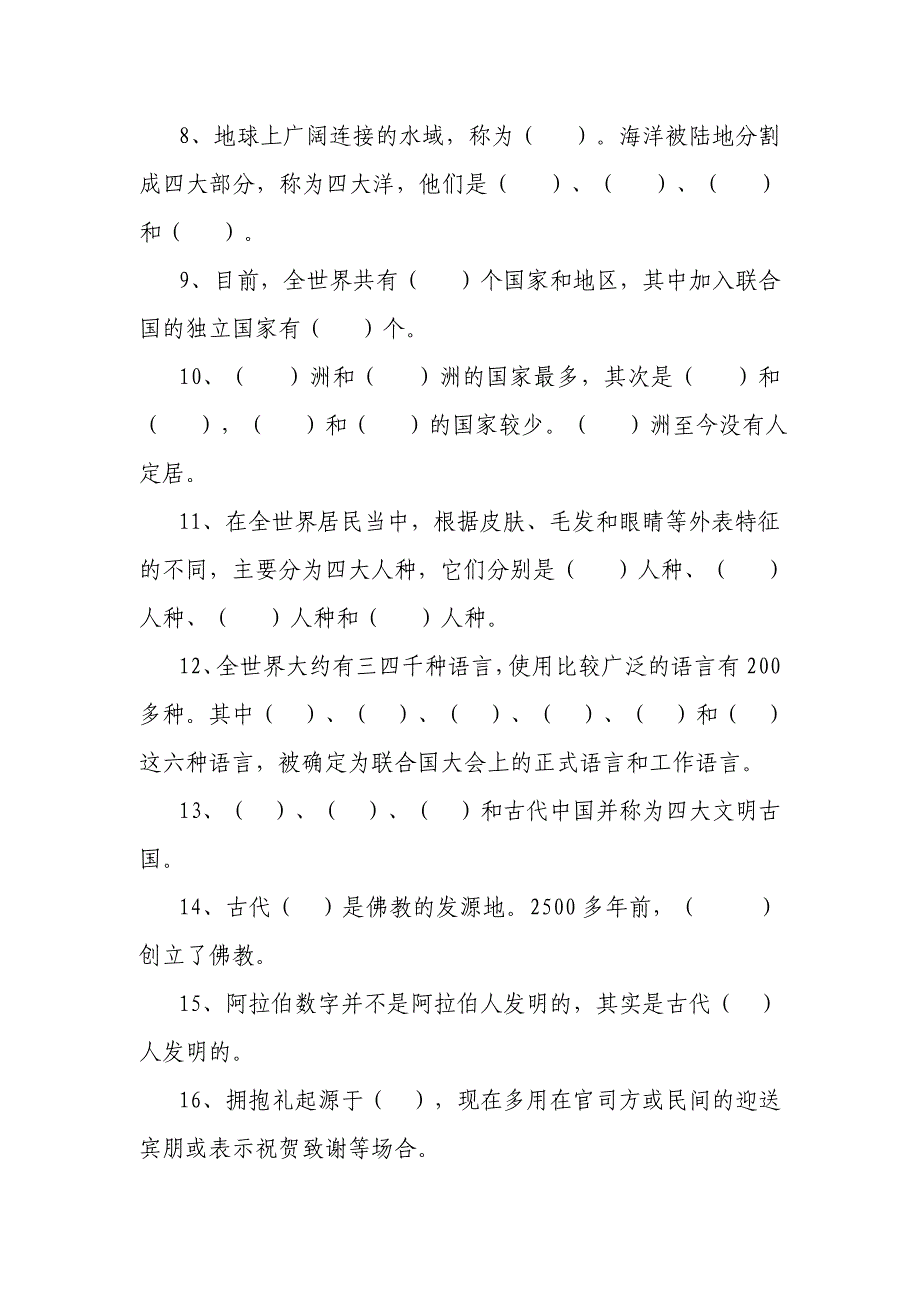 8、地球上广阔连接的水域，称为（   ）。海洋被陆地分割
成四大部分，称为四大洋，他们是（   ）、（   ）、（   ）
和（   ）。
9、目前，全世界共有（   ）个国家和地区，其中加入联合
国的独立国家有（   ）个。
10、（   ）洲和（   ）洲的国家最多，其次是（   ）和
（   ），（   ）和（   ）的国家较少。（   ）洲至今没有人
定居。
11、在全世界居民当中，根据皮肤、毛发和眼睛等外表特征
的不同，主要分为四大人种，它们分别是（   ）人种、（   ）
人种、（   ）人种和（   ）人种。
12、全世界大约有三四千种语言，使用比较广泛的语言有 200
多种。其中（  ）、（  ）、（  ）、（  ）、（  ）和（  ）
这六种语言，被确定为联合国大会上的正式语言和工作语言。
13、（  ）、（  ）、（  ）和古代中国并称为四大文明古
国。
14、古代（  ）是佛教的发源地。2500 多年前，（     ）
创立了佛教。
15、阿拉伯数字并不是阿拉伯人发明的，其实是古代（  ）
人发明的。
16、拥抱礼起源于（  ），现在多用在官司方或民间的迎送
宾朋或表示祝贺致谢等场合。